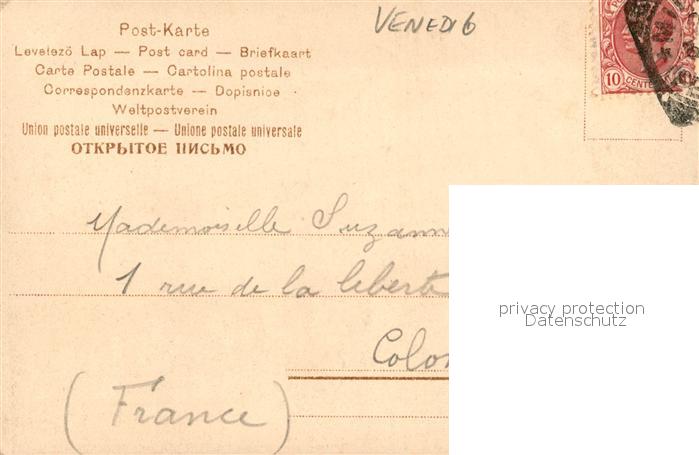 Post-Karte
VENEDIG
Levelező Lap — Post card — Briefkaart
Carte Postale — Cartolina postale
Correspondenzkarte — Dopisnice
Weltpostverein
Union postale universelle — Unione postale universale
ОТКРЫТОЕ ПИСЬМО
10 CENTE
Mademoiselle Suzann
1 rue de la liberté
Colo
(France)
privacy protection
Datenschutz